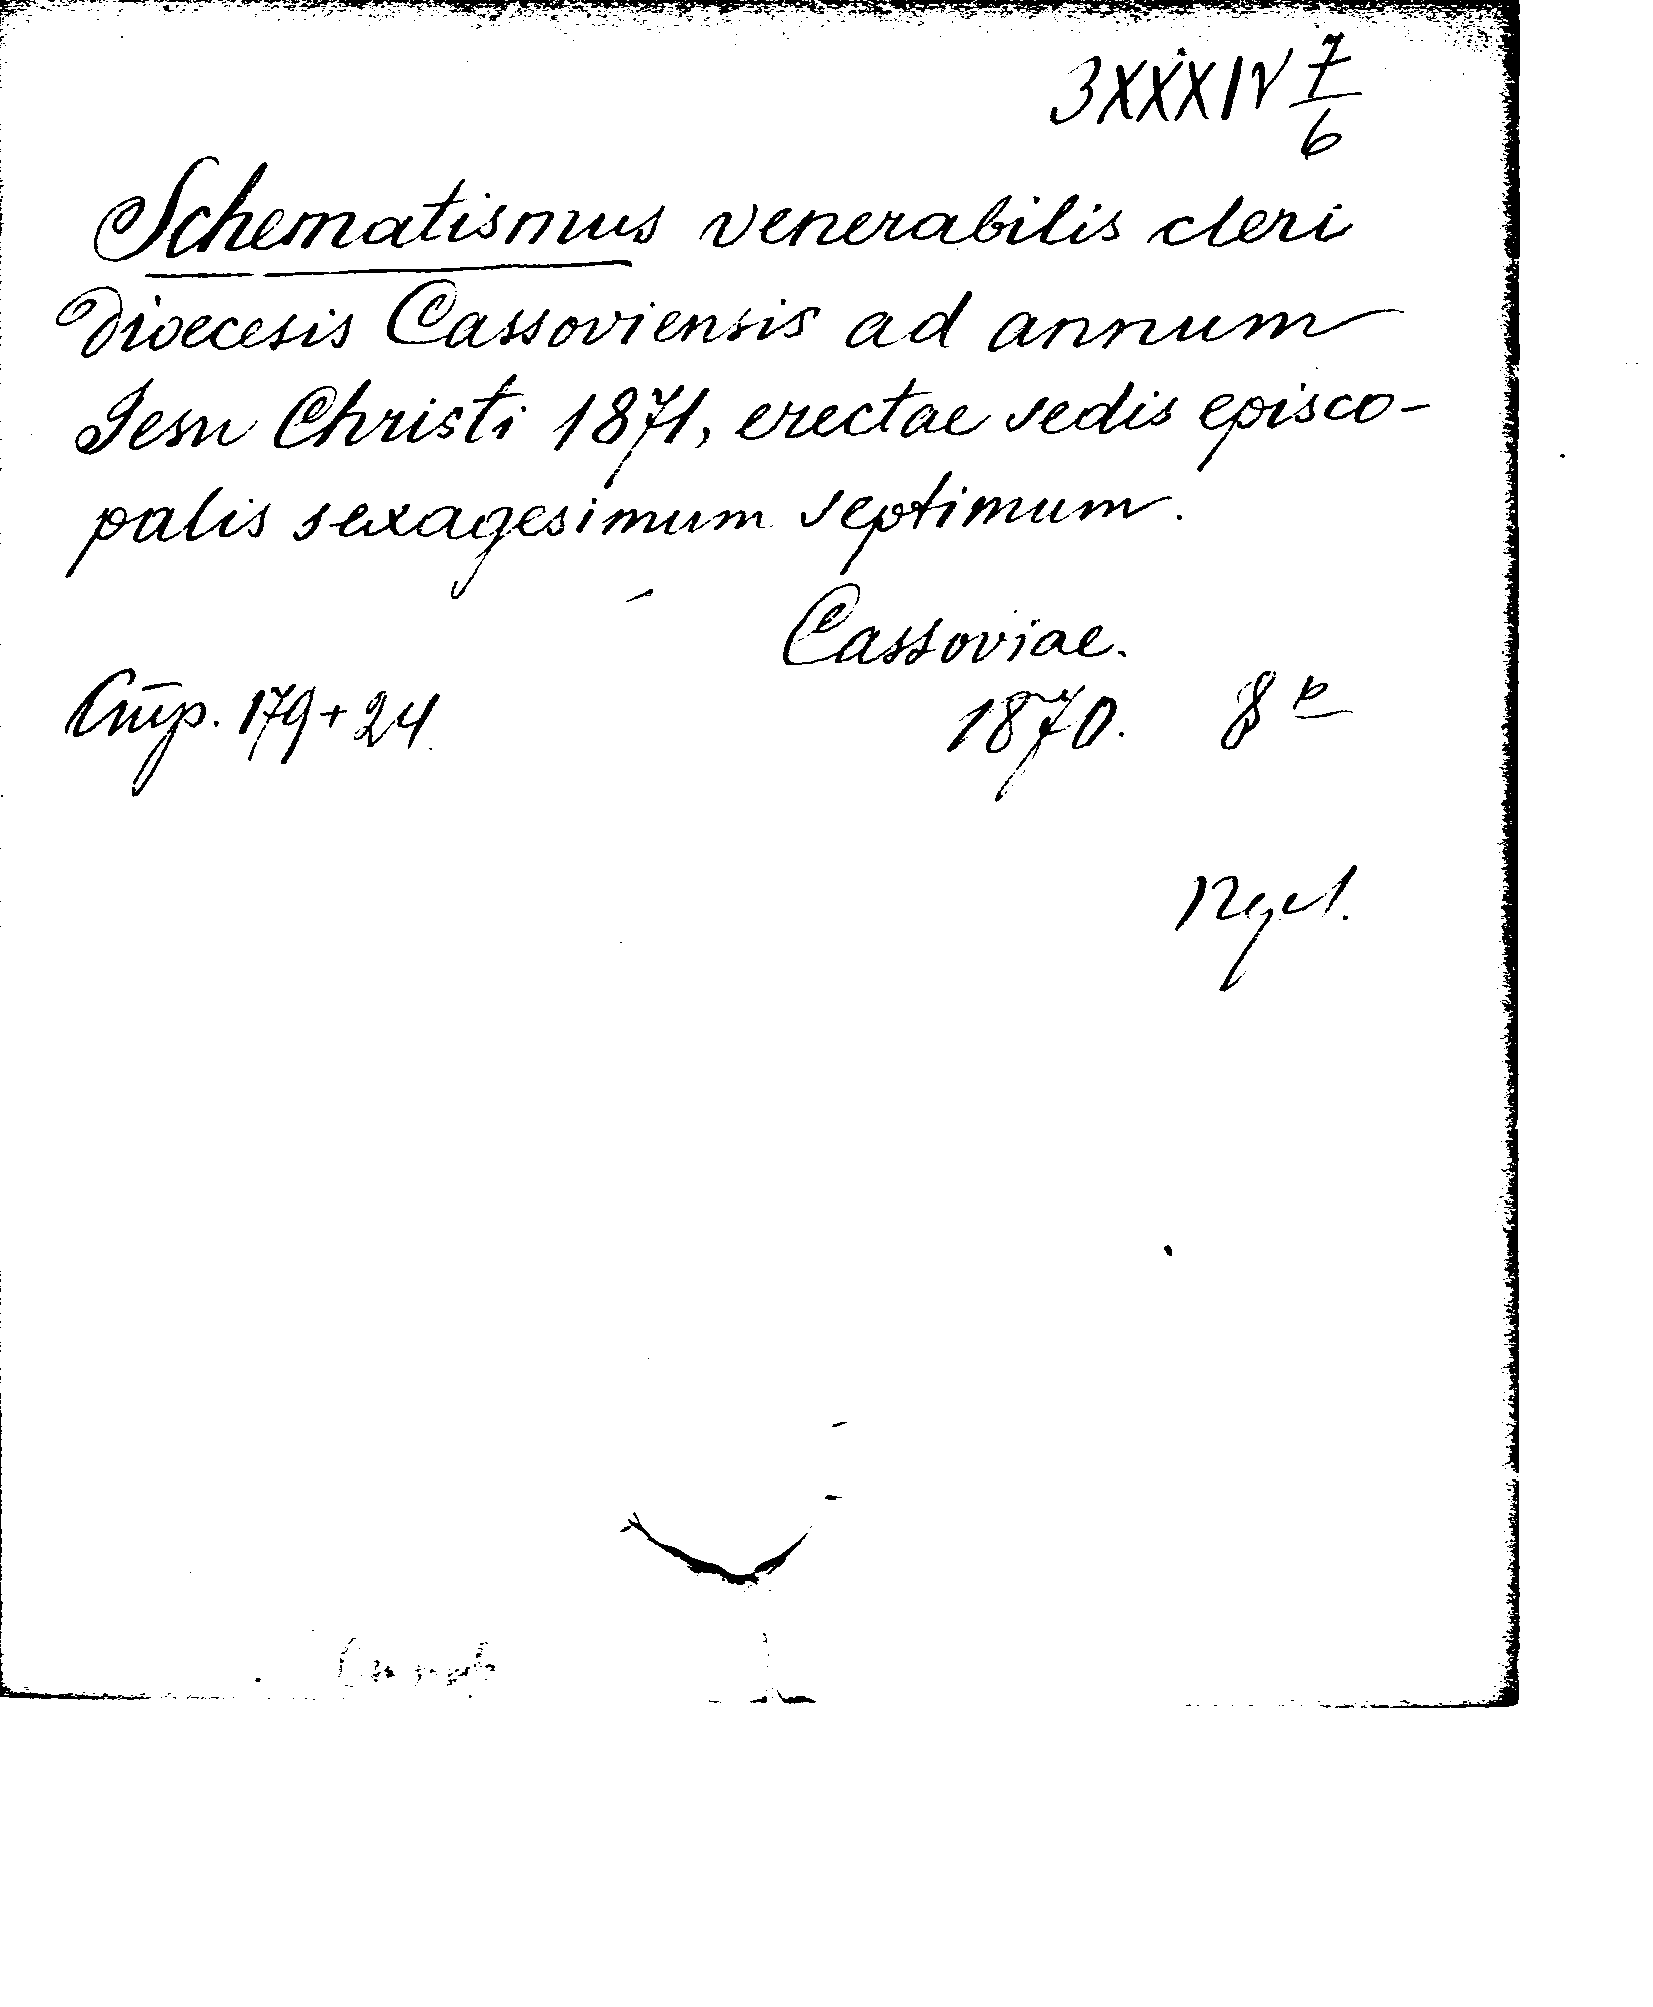 3XXXIV 7/6
Schematismus venerabilis cleri
Dioecesis Cassoviensis ad annum
Jesu Christi 1871, erectae sedis episco-
palis sexagesimum septimum.
Cassoviae.
Стр. 179+24. 1870. 8º